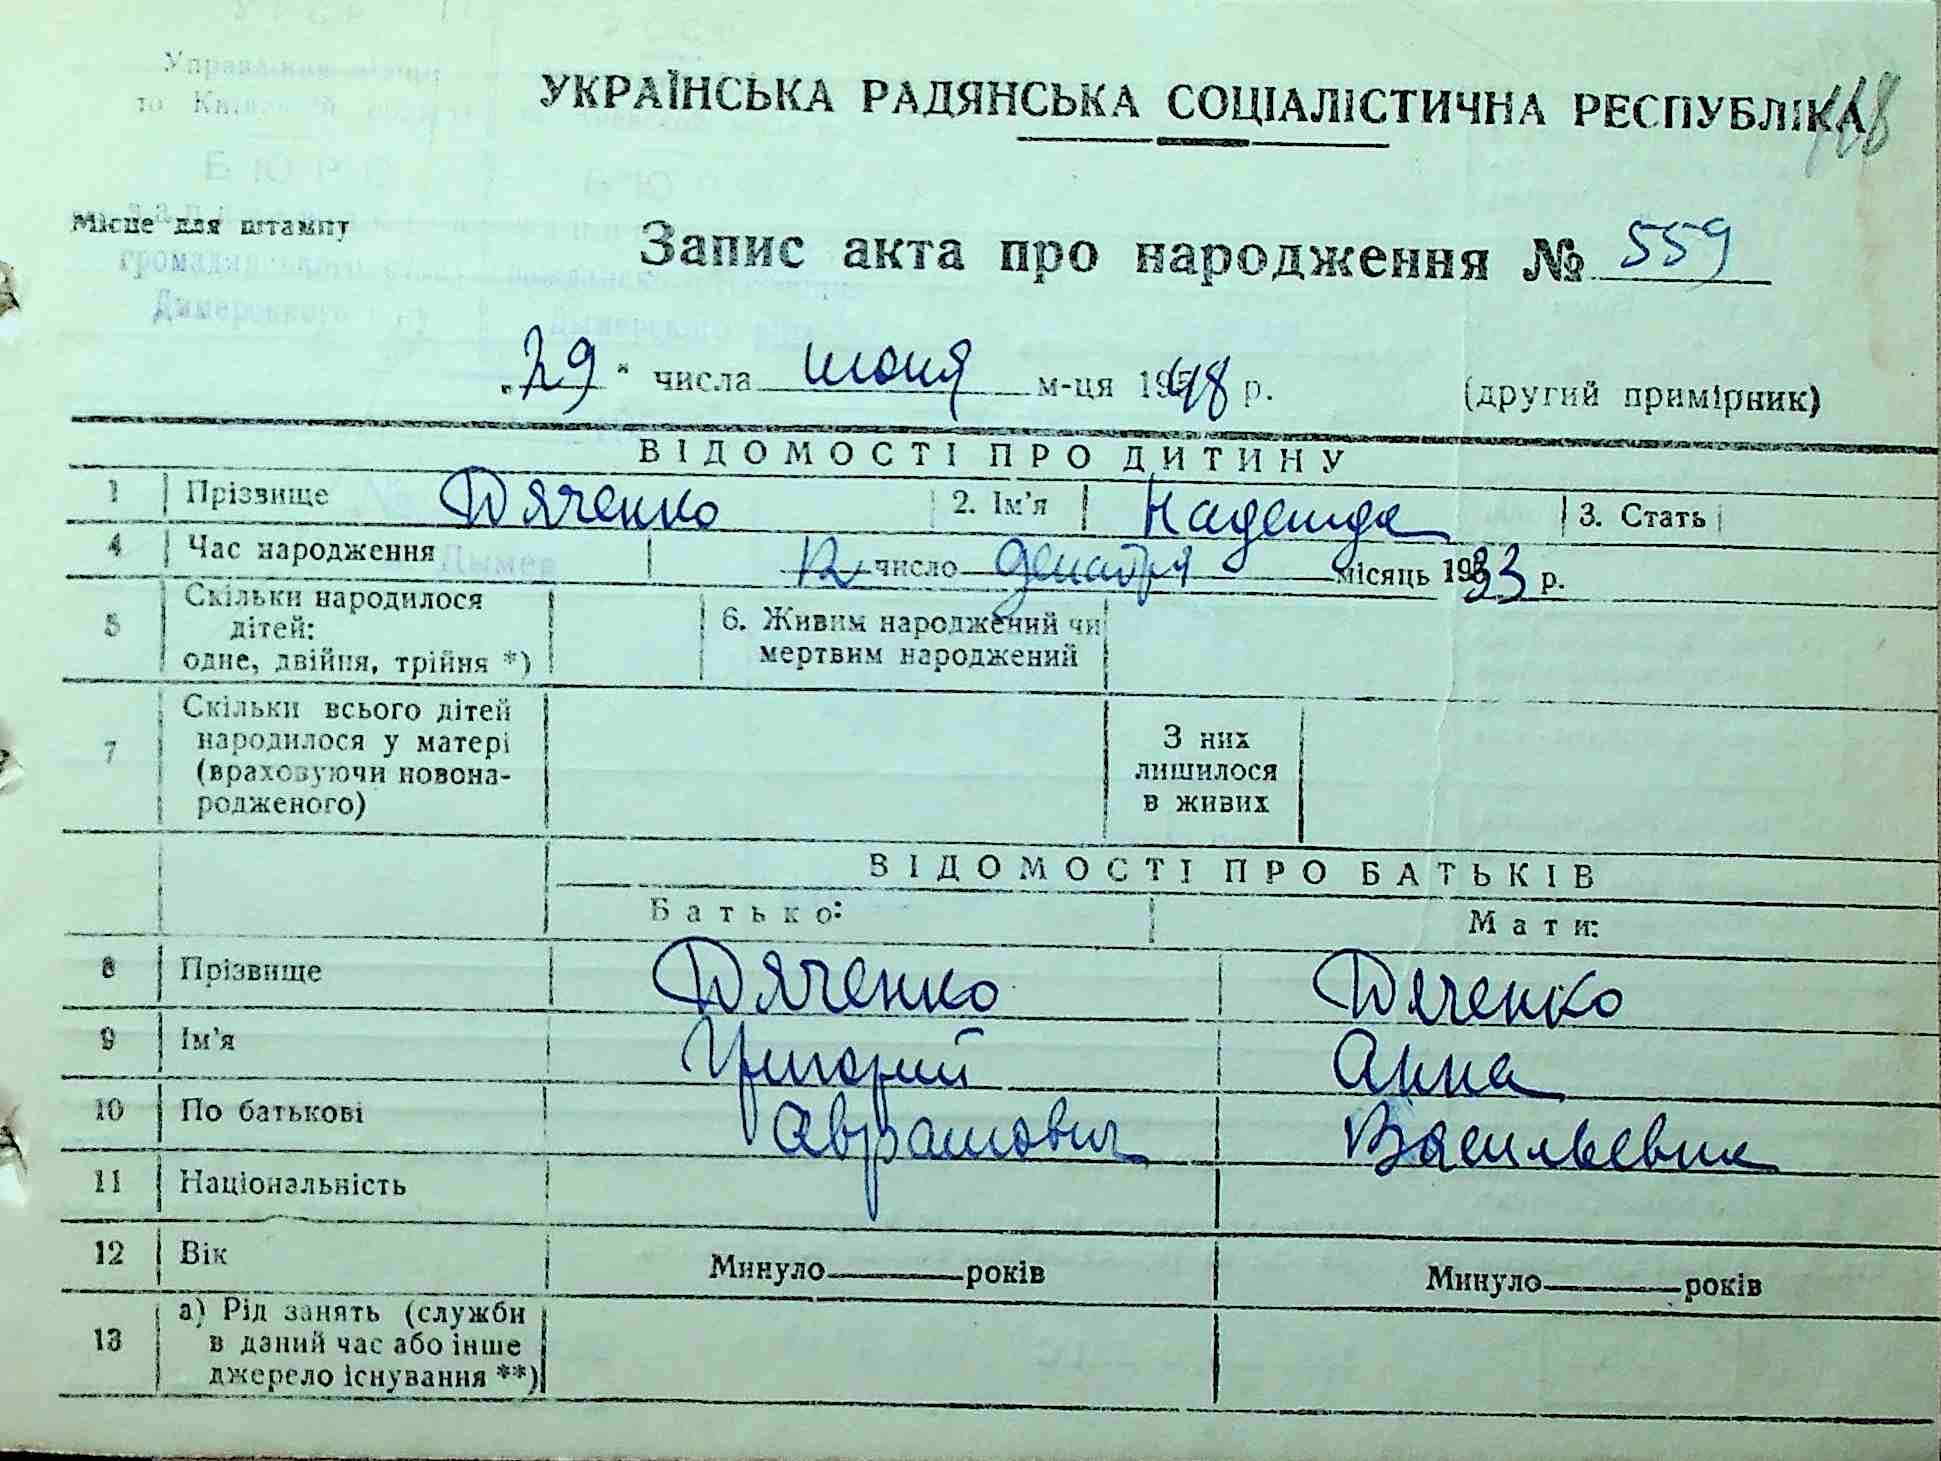 УКРАЇНСЬКА РАДЯНСЬКА СОЦІАЛІСТИЧНА РЕСПУБЛІКА
Місце для штампу
Запис акта про народження № 559
„29“ числа июня м-ця 1948 р. (другий примірник)
ВІДОМОСТІ ПРО ДИТИНУ
1 Прізвище Дяченко 2. Ім'я Надежда 3. Стать
4 Час народження 12 число декабря місяць 1933 р.
5 Скільки народилося дітей: одне, двійня, трійня *) 6. Живим народжений чи мертвим народжений
7 Скільки всього дітей народилося у матері (враховуючи новонародженого) З них лишилося в живих
ВІДОМОСТІ ПРО БАТЬКІВ
Батько: Мати:
8 Прізвище Дяченко Дяченко
9 Ім'я Григорий Анна
10 По батькові Аврамович Васильевна
11 Національність
12 Вік Минуло років Минуло років
13 а) Рід занять (служби в даний час або інше джерело існування **)